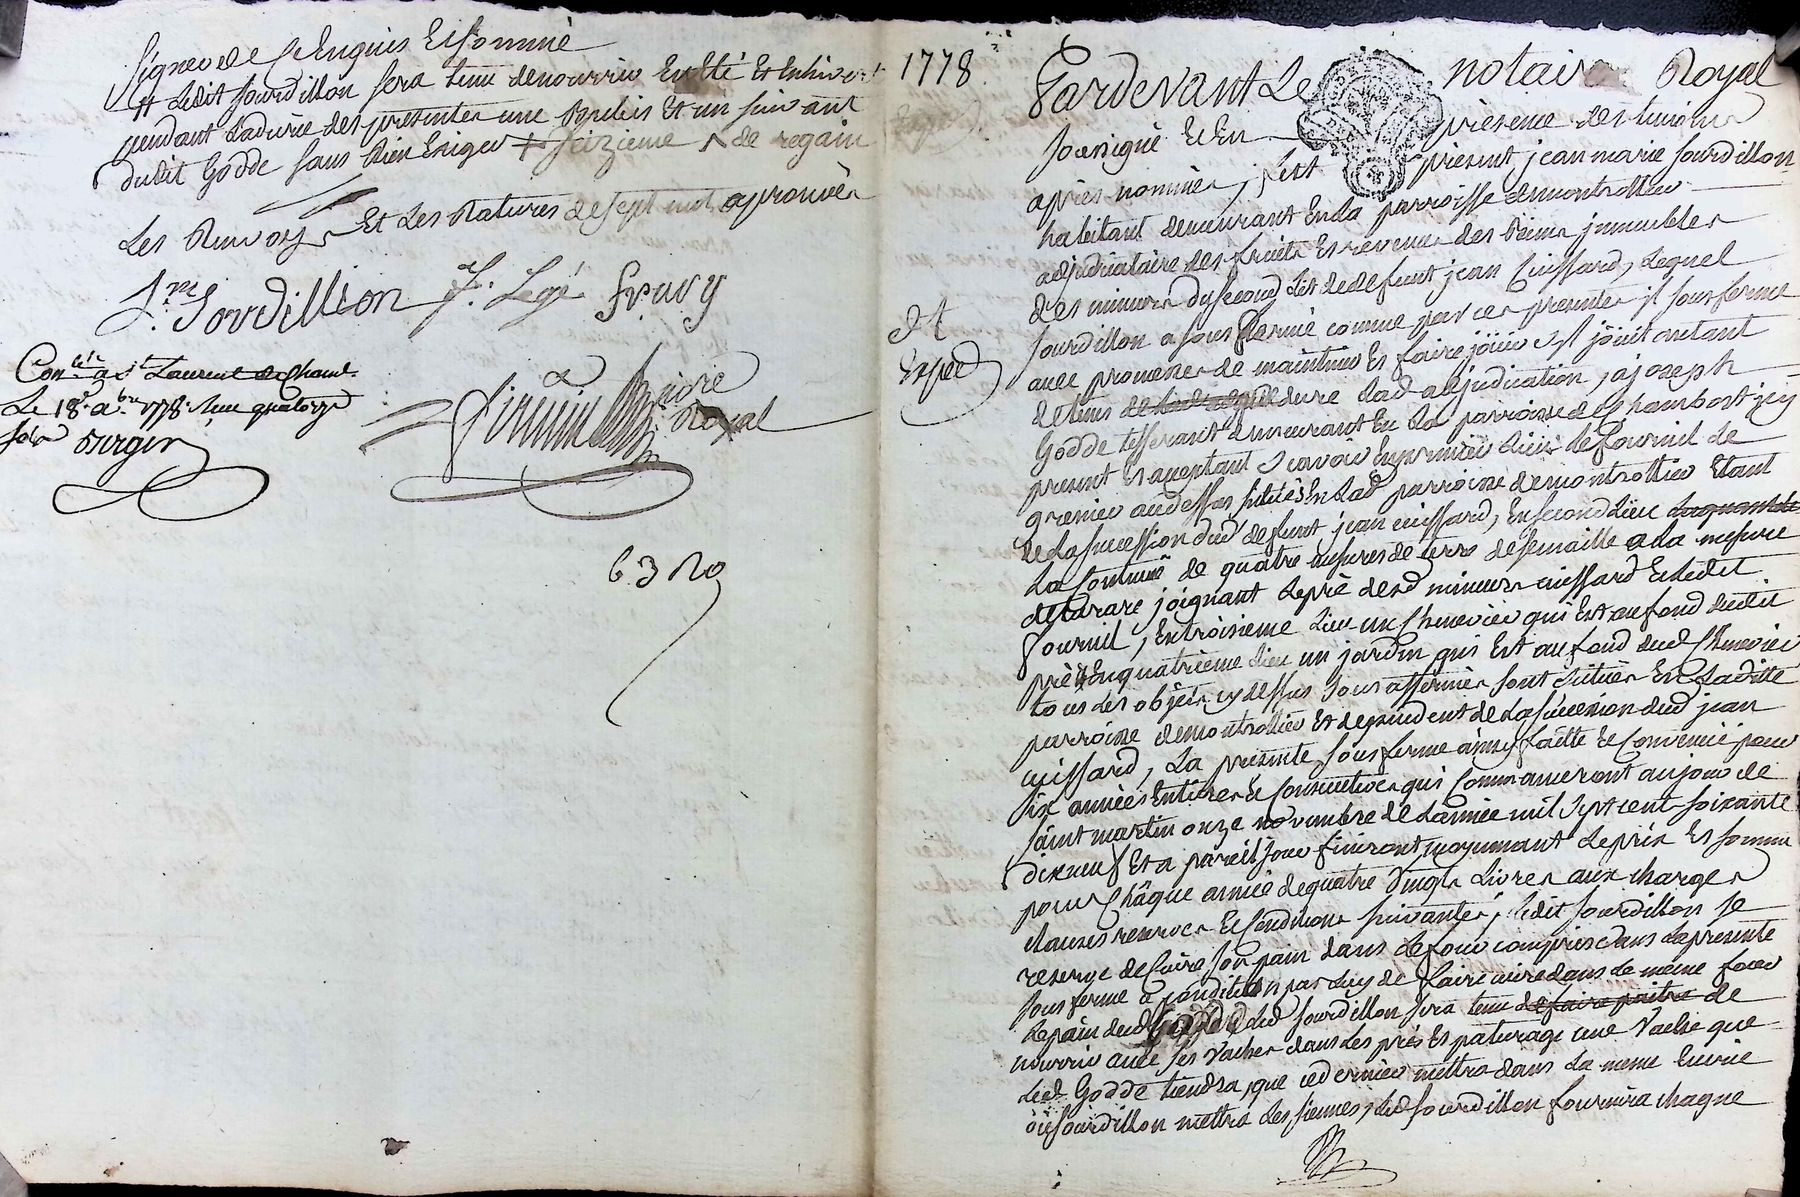 signer de ce Enquis Et sommé
# Ledit Sourdillon sera tenu de nourrir En Eté Et En hiver
pendant La durée des presentes une Brebis Et un suivant
dudit Godde sans Rien Exiger + seizieme de regain
Les Renvoys Et Les Ratures de sept mots approuvés
J. m. Sourdillion J. Legé Fravy
Conlé a st Laurent de Chamt.
Le 18e Xbre 1778. Reçu quatorze
sols
notre
Royal
1778.
Et
Exped
Pardevant Le notaire Royal
soussigné Et En presence des temoins
après nommés, fut present jean marie sourdillon
habitant demeurant En La parroisse de montrottier
adjudicataire des fruits Et revenus des Biens immeubles
des mineurs du second Lit de defunt jean Cuissard, Lequel
sourdillon a sous fermé comme par ces presentes il sous ferme
avec promesse de maintenir Et faire jouir Et jouit autant
de tems dure Lad adjudication, a joseph
Godde tisserant demeurant En La parroisse de Chambost icy
present Et acceptant Scavoir En premier Lieu Le fournil Le
grenier au dessus situés En Lad parroisse de montrottier Etant
de La succession dud defunt jean cuissard, En second Lieu
La Contenue de quatre mesures de terre de semaille a La mesure
de tarare joignant Le pré desd mineurs cuissard Et Ledit
fournil, En troisieme Lieu un Chenevier qui Est au fond dudit
pré Et En quatrieme Lieu un jardin qui Est au fond dud Chenevier
tous Les objets cy dessus sous affermés sont situés En Laditte
parroisse de montrottier Et dependent de La succession dud jean
cuissard, La presente sous ferme ainsy faitte Et Convenue pour
six années Entieres Et Consecutives qui Commanceront au jour de
saint martin onze novembre de Lannée mil sept cent soixante
dixneuf Et a pareil jour finiront moyennant Le prix Et somme
pour Châque année de quatre vingts Livres aux charges
clauses reserves Et Conditions suivantes, Ledit sourdillon se
reserve de Cuire son pain dans Le four compris dans La presente
sous ferme a condition par Luy de faire cuire dans Le même four
Le pain dud Godde Led sourdillon sera tenu de faire paitre de
nourrir avec ses vaches dans Les prés Et paturage une vache que
Led Godde tiendra, que ce dernier mettra dans La meme Ecurie
où sourdillon mettra Les siennes, Led sourdillon fournira chaque